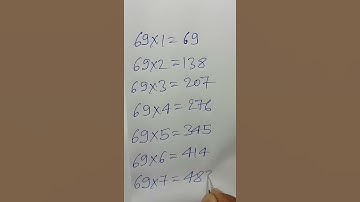 69×1=69
69×2=138
69×3=207
69×4=276
69×5=345
69×6=414
69×7=483